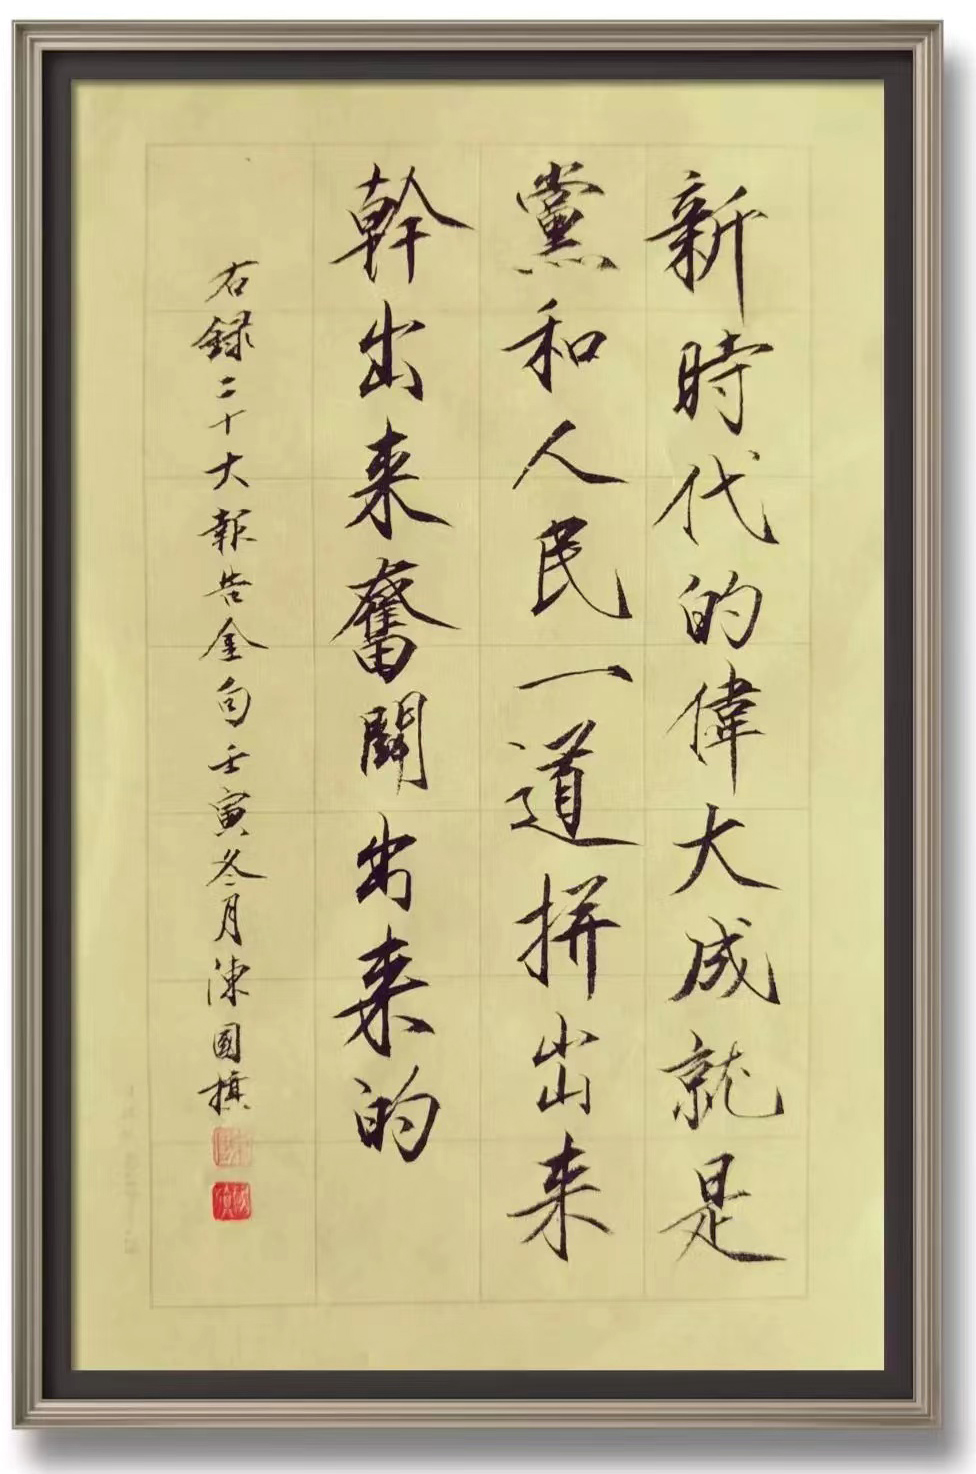 新時代的偉大成就是
黨和人民一道拼出来
幹出来奮鬭出来的
右録二十大報告金句壬寅冬月陳國旗